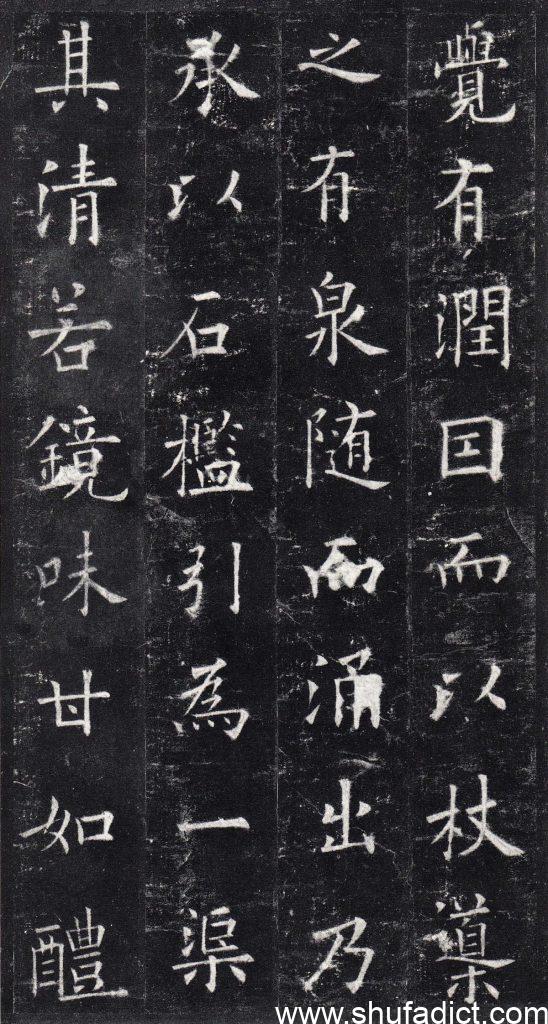 覺有潤囙而以杖導
之有泉随而涌出乃
承以石檻引為一渠
其清若鏡味甘如醴
www.shufadict.com